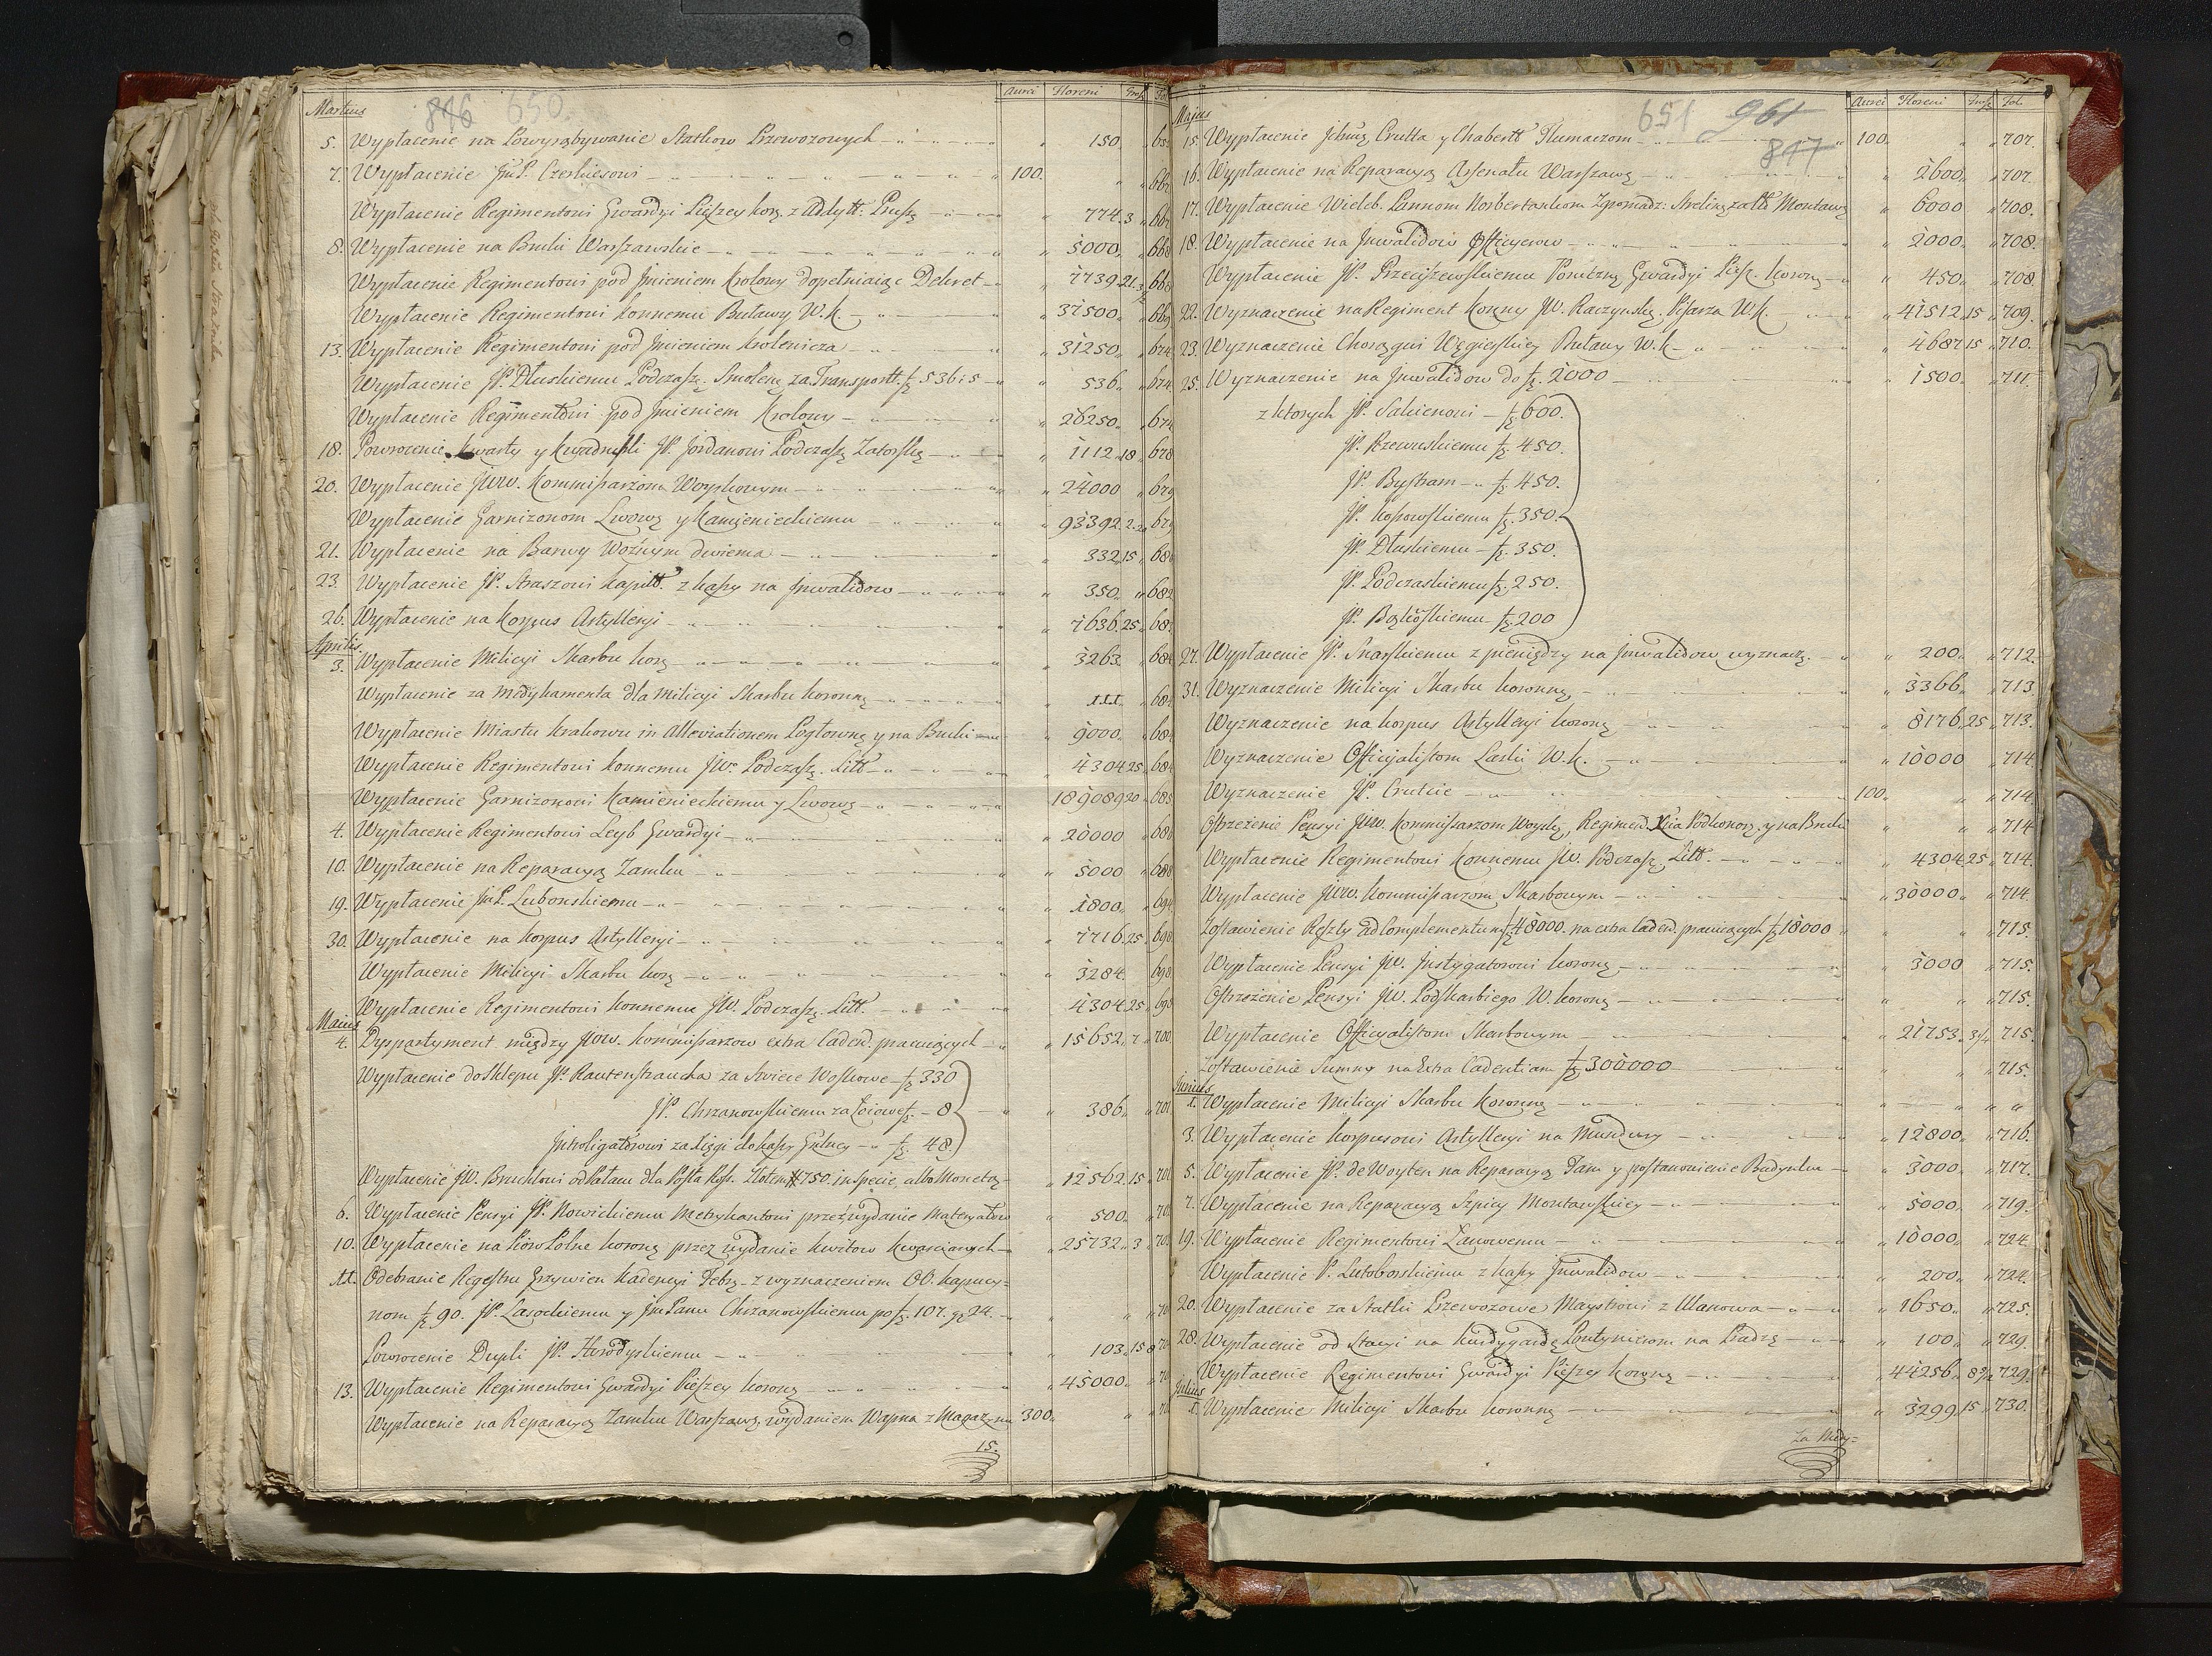 846 650.
Martius Aurei Floreni Gross Fol
5. Wypłacenie na Powyrąbywanie Statkow Przewozowych 150.
7. Wypłacenie JmP. Czerkiesowi 100.
Wypłacenie Regimentowi Gwardyi Pieszey Kor. z Addytt: Prusk 774. 3
8. Wypłacenie na Bruki Warszawskie 5000.
Wypłacenie Regimentowi pod Jmieniem Krolowy dopełniaiąc Dekret 7739. 21.
Wypłacenie Regimentowi Konnemu Buławy W.K. 37500.
13. Wypłacenie Regimentowi pod Jmieniem Krolewicza 31250. 674
Wypłacenie JP. Dłuskiemu Podczasz. Smoleń za Transportt. fz 536: 5 536. 674
Wypłacenie Regimentowi pod Jmieniem Krolowy 26250. 674
18. Powrocenie Kwarty y Kwadrupli JP. Jordanowi Podczasz Zatorsk 1112. 18 678
20. Wypłacenie JWW. Kommissarzom Woyskowym 24000 679
Wypłacenie Garnizonom Lwows y Kamienieckiemu 93392. 2. 679
21. Wypłacenie na Barwy Woźnym dwiema 332. 15
23. Wypłacenie JP. Straszowi Kapitt. z kassy na Jnwalidow 350. 682
26. Wypłacenie na Korpus Artylleryi 7636. 25
Aprilis
3. Wypłacenie Milicyi Skarbu Kor 3263. 684
Wypłacenie za Medykamenta dla Milicyi Skarbu Koronn 111.
Wypłacenie Miastu Krakowu in Alleviationem Pogłown y na Bruki 9000.
Wypłacenie Regimentowi Konnemu JW. Podczasz. Litt 4304 25
Wypłacenie Garnizonowi Kamienieckiemu y Lwows 189089 20 685
4. Wypłacenie Regimentowi Leyb Gwardyi 20000
10. Wypłacenie na Reparacyą Zamku 5000 688
19. Wypłacenie JmP. Lubonskiemu 1800.
30. Wypłacenie na Korpus Artylleryi 7716. 25 698
Wypłacenie Milicyi Skarbu Kor 3284. 698
Wypłacenie Regimentowi Konnemu JW. Podczasz. Litt. 4304. 25 698
Maius
4. Dyspartyment między JWW. Kommissarzow extra Cadend. pracuiących 15652. 7 700
Wypłacenie do Sklepu JP. Rautenstraucha za Swiece Woskowe fz 330
JP. Chrzanowskiemu za fz. 8 386. 701
Jntroligatorowi za księgi do Kassy Gułney fz. 48.
Wypłacenie JW. Bruhlowi od Pałacu dla Posła Ross. Złotem # 750. in specie, albo Monetą 12562. 15 701
6. Wypłacenie Pensyi JP. Nowickiemu Metrykantowi przez wydanie Materyałow 500.
10. Wypłacenie na Kiow Polne Koron przez wydanie Kwitow Kwarcianych 25732. 3
11. Odebranie Regestru Grzywien Kadencyi Febr. z wyznaczeniem OO. Kapucy=
nom fz 90. JP. Lasockiemu y Jm Panu Chrzanowskiemu po fz. 107. gr 24.
Powrocenie Dupli JP. Horodyskiemu 103. 15
13. Wypłacenie Regimentowi Gwardyi Pieszey Koron 45000.
Wypłacenie na Reparacyą Zamku Warszaws wydaniem Wapna z Magazynu 300.
15.
651 961
847
Majus Aurei Floreni Gross Fol.
15. Wypłacenie Crutta y Chabertt Tłumaczom 100. 707.
16. Wypłacenie na Reparacyą Arsenału Warszaws 2600. 707.
17. Wypłacenie Wieleb. Pannom Norbertankom Zgromadz: Strelin za Montaws 6000 708.
18. Wypłacenie na Jnwalidow Officyerow 2000. 708.
Wypłacenie JP. Przeciszewskiemu Poruczn Gwardyi Piesz. Koron 450. 708.
22. Wyznaczenie na Regiment Konny JW. Raczynsk. Pisarza W.K. 41512. 15 709.
23. Wyznaczenie Chorągwi Węgierskiey Buławy W.K. 4687 15 710.
25. Wyznaczenie na Jnwalidow do fz. 2000 1500. 711.
z ktorych JP. Sakienowi fz 600.
JP. Rzewuskiemu fz. 450.
JP. Bystram fz. 450.
JP. Kossowskiemu fz. 350.
JP. Dłuskiemu fz. 350.
JP. Podczaskiemu fz. 250.
JP. Bąkowskiemu fz 200
27. Wypłacenie JP. Snarskiemu z pieniędzy na Jnwalidow wyznacz. 200. 712.
31. Wyznaczenie Milicyi Skarbu Koronn 3366. 713
Wyznaczenie na Korpus Artylleryi Koron 8176. 25 713.
Wyznaczenie Officyalistom Laski W.K. 10000 714.
Wyznaczenie JP. Crutcie 100. 714.
Ostrzeżenie Pensyi JWW. Kommissarzom Woysk, Regimend. Xcia Podkonor. y na Bruki 714
Wypłacenie Regimentowi Konnemu JW. Podczasz Litt. 4304 25 714.
Wypłacenie JWW. Kommissarzom Skarbowym 30000. 714.
Zostawienie Reszty ad Complementum fz 48000. na extra Cadend. pracuiących fz 18000 715.
Wypłacenie Pensyi JW. Jnstygatorowi Koron 3000 715.
Ostrzeżenie Pensyi JW. Podskarbiego W. Koron 715.
Wypłacenie Officyalistom Skarbowym 21753. 715.
Zostawienie Summy na Extra Cadentiam fz 300000 715.
Junius
1. Wypłacenie Milicyi Skarbu Koronn
3. Wypłacenie Korpusowi Artylleryi na Mundury 12800. 716.
5. Wypłacenie JP. de Woyten na Reparacyą Tam y postanowienie Budynku 3000. 717.
7. Wypłacenie na Reparacyą Szpicy Montawskiey 5000. 719.
19. Wypłacenie Regimentowi Łanowemu 10000. 724.
Wypłacenie P. Lutoborskiemu z kassy Jnwalidow 200. 724.
20. Wypłacenie za Statki Przewozowe Maystrowi z Ulanowa 1650. 725.
28. Wypłacenie od Stacyi na Kurdygardę Contyncirom na Pradze 100. 729.
Wypłacenie Regimentowi Gwardyi Pieszey Koron 44256. 729.
Julius
1. Wypłacenie Milicyi Skarbu Koronn 3299 15 730.
Za Medy=